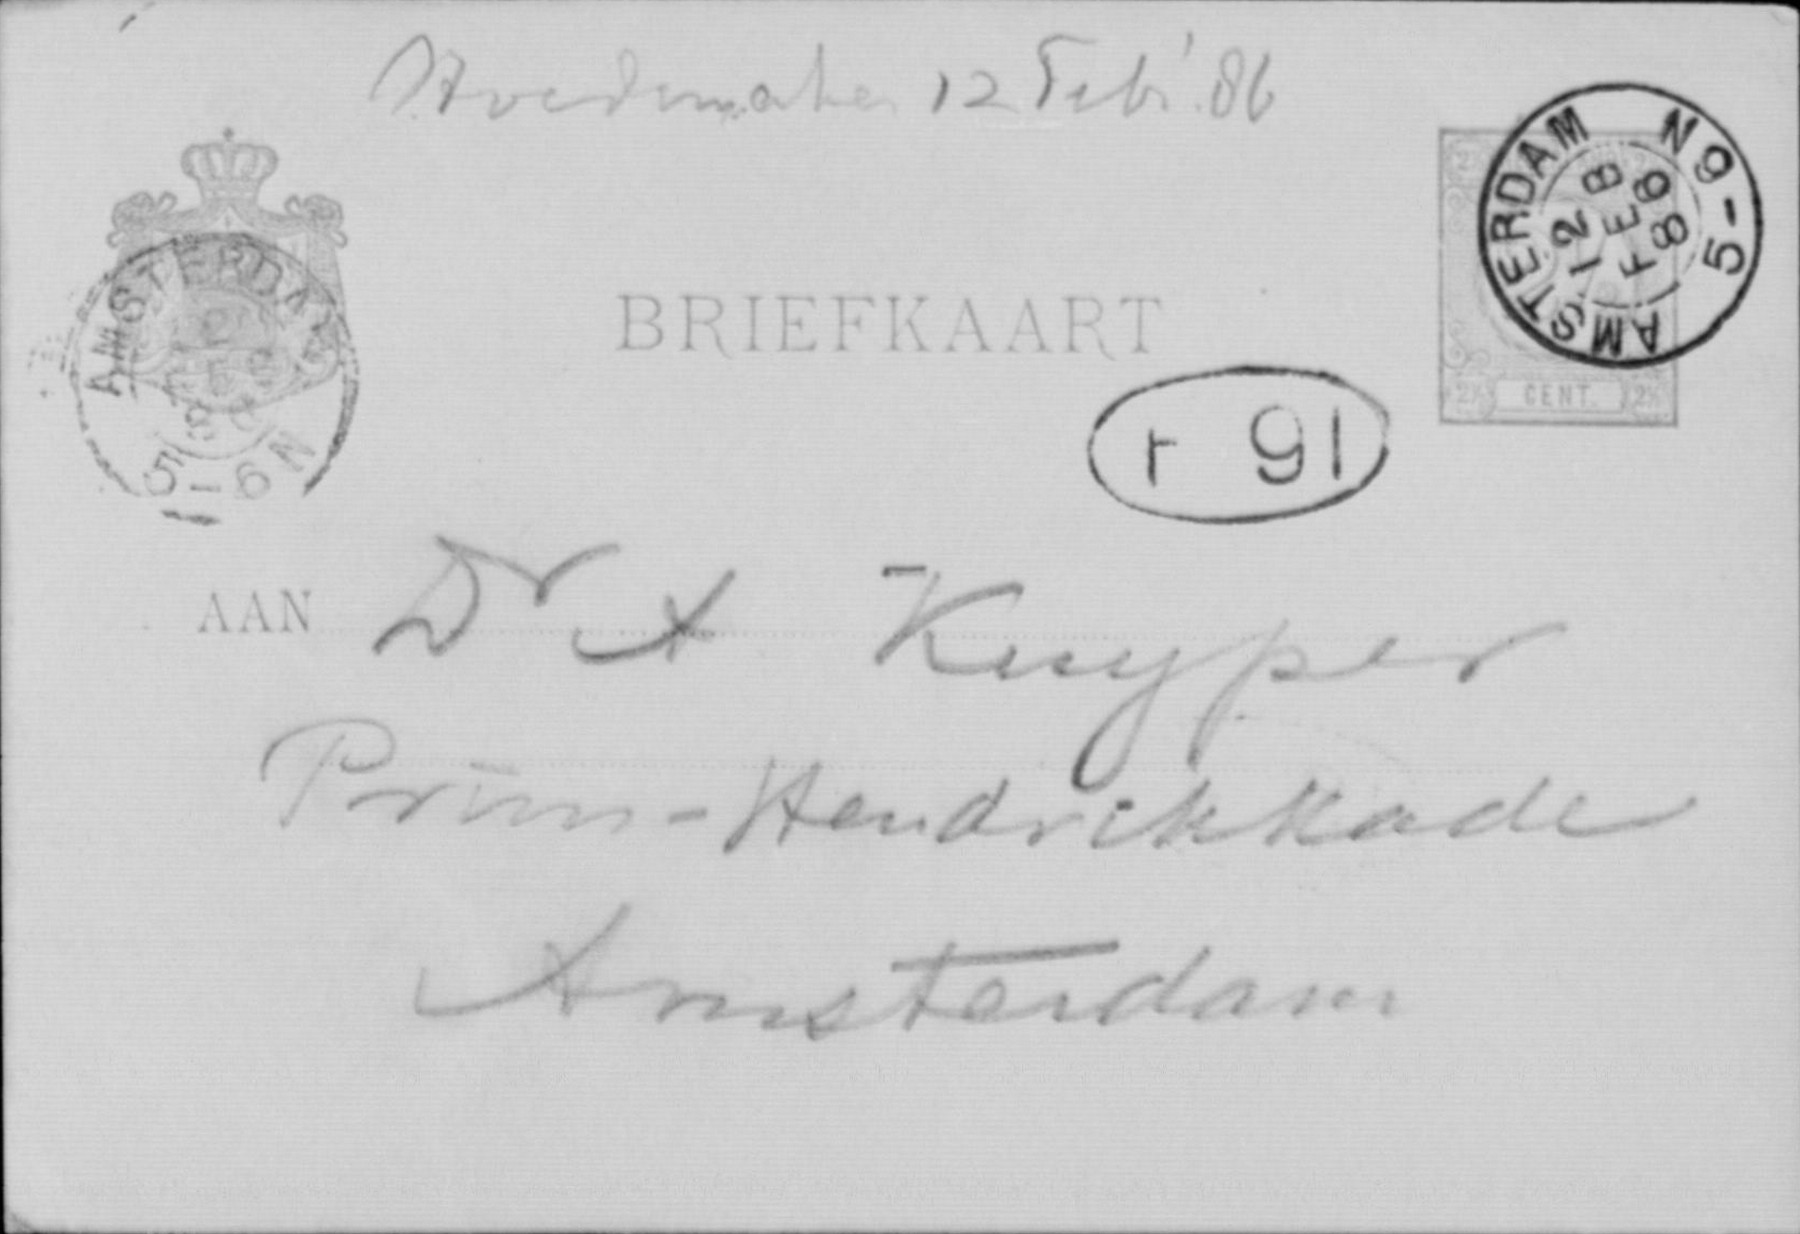 Hoedemaker 12 Febr '86
BRIEFKAART
AMSTERDAM
12 FEB 86
5-6N
AMSTERDAM
5-6N
2½ CENT. 2½
r 91
AAN Dr A Kuyper
Prins-Hendrikkade
Amsterdam